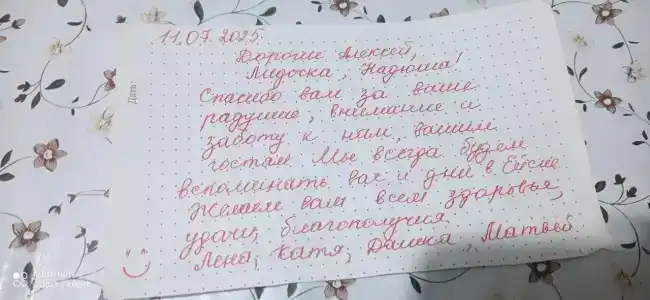 11.07.2025.
Дорогие Алексей,
Лидочка, Надюша!
Спасибо вам за ваше
радушие, внимание и
заботу к нам, вашим
гостям. Мы всегда будем
вспоминать вас и дни в Ейске
Желаем вам всем здоровья,
удачи, благополучия
Лена, Катя, Дашка, Матвей.
Дата: